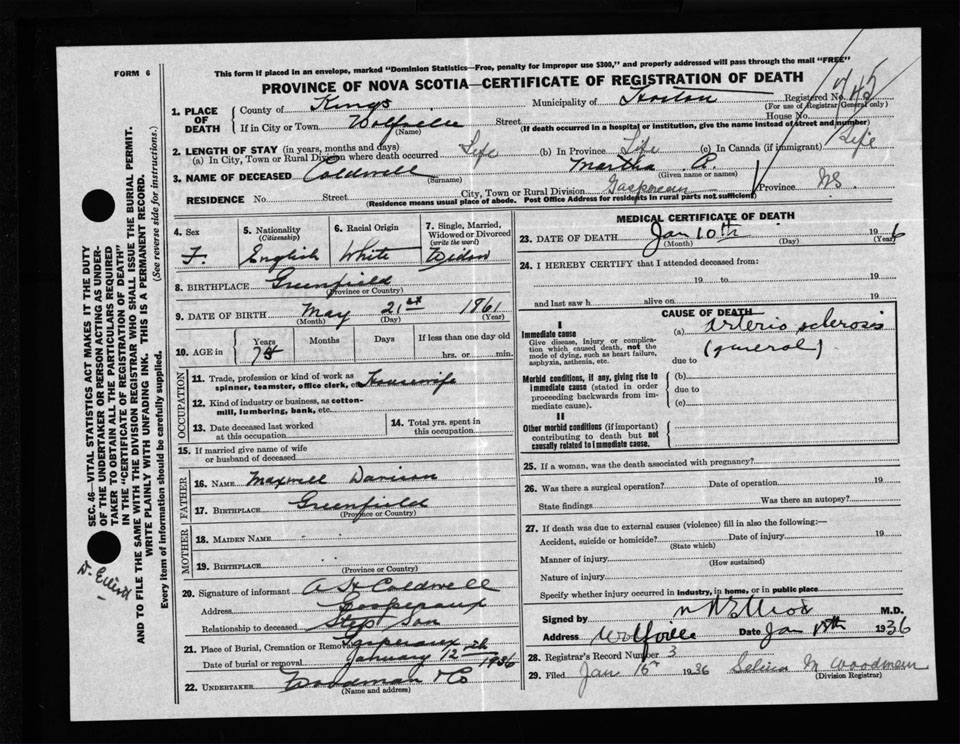 FORM 6
This form if placed in an envelope, marked "Dominion Statistics—Free, penalty for improper use $300," and properly addressed will pass through the mail "FREE"
PROVINCE OF NOVA SCOTIA—CERTIFICATE OF REGISTRATION OF DEATH
Registered No.
(For use of Registrar General only)
1. PLACE OF DEATH
County of Kings Municipality of Horton
If in City or Town Wolfville Street House No.
(Name) (If death occurred in a hospital or institution, give the name instead of street and number)
2. LENGTH OF STAY (in years, months and days)
(a) In City, Town or Rural Division where death occurred Life (b) In Province Life (c) In Canada (if immigrant) Life
3. NAME OF DECEASED Coldwell Martha A.
(Surname) (Given name or names)
RESIDENCE No. Street City, Town or Rural Division Gaspereau Province NS.
(Residence means usual place of abode. Post Office Address for residents in rural parts not sufficient)
4. Sex
F.
5. Nationality
(Citizenship)
English
6. Racial Origin
White
7. Single, Married,
Widowed or Divorced
(write the word)
Widow
8. BIRTHPLACE Greenfield
(Province or Country)
9. DATE OF BIRTH May 21st 1861
(Month) (Day) (Year)
10. AGE in
Years Months Days If less than one day old
74 hrs. or min.
OCCUPATION
11. Trade, profession or kind of work as
spinner, teamster, office clerk, etc. Housewife
12. Kind of industry or business, as cotton-
mill, lumbering, bank, etc.
13. Date deceased last worked
at this occupation
14. Total yrs. spent in
this occupation
15. If married give name of wife
or husband of deceased
FATHER
16. NAME Maxwell Davison
17. BIRTHPLACE Greenfield
(Province or Country)
MOTHER
18. MAIDEN NAME
19. BIRTHPLACE
(Province or Country)
20. Signature of informant A H Coldwell
Address Gaspereaux
Relationship to deceased Step Son
21. Place of Burial, Cremation or Removal Gaspereaux
Date of burial or removal January 12th 1936
22. UNDERTAKER Woodman & Co
(Name and address)
MEDICAL CERTIFICATE OF DEATH
23. DATE OF DEATH Jan 10th 19 6
(Month) (Day) (Year)
24. I HEREBY CERTIFY that I attended deceased from:
19 to 19
and last saw h alive on 19
CAUSE OF DEATH
I
Immediate cause
Give disease, injury or complica-
tion which caused death, not the
mode of dying, such as heart failure,
asphyxia, asthenia, etc.
(a) Arterio sclerosis
(general)
due to
Morbid conditions, if any, giving rise to
immediate cause (stated in order
proceeding backwards from im-
mediate cause).
(b)
due to
(c)
II
Other morbid conditions (if important)
contributing to death but not
causally related to immediate cause.
25. If a woman, was the death associated with pregnancy?
26. Was there a surgical operation? Date of operation 19
State findings Was there an autopsy?
27. If death was due to external causes (violence) fill in also the following:—
Accident, suicide or homicide? Date of injury 19
(State which)
Manner of injury
(How sustained)
Nature of injury
Specify whether injury occurred in industry, in home, or in public place
Signed by M.D.
Address Wolfville Date Jan 1936
28. Registrar's Record Number 3
29. Filed Jan 1936 Selina M Woodman
(Division Registrar)
SEC. 46—VITAL STATISTICS ACT MAKES IT THE DUTY
OF THE UNDERTAKER OR PERSON ACTING AS UNDER-
TAKER TO OBTAIN ALL THE PARTICULARS REQUIRED
IN THE "CERTIFICATE OF REGISTRATION OF DEATH"
AND TO FILE THE SAME WITH THE DIVISION REGISTRAR WHO SHALL ISSUE THE BURIAL PERMIT.
WRITE PLAINLY WITH UNFADING INK. THIS IS A PERMANENT RECORD.
Every item of information should be carefully supplied. (See reverse side for instructions.)